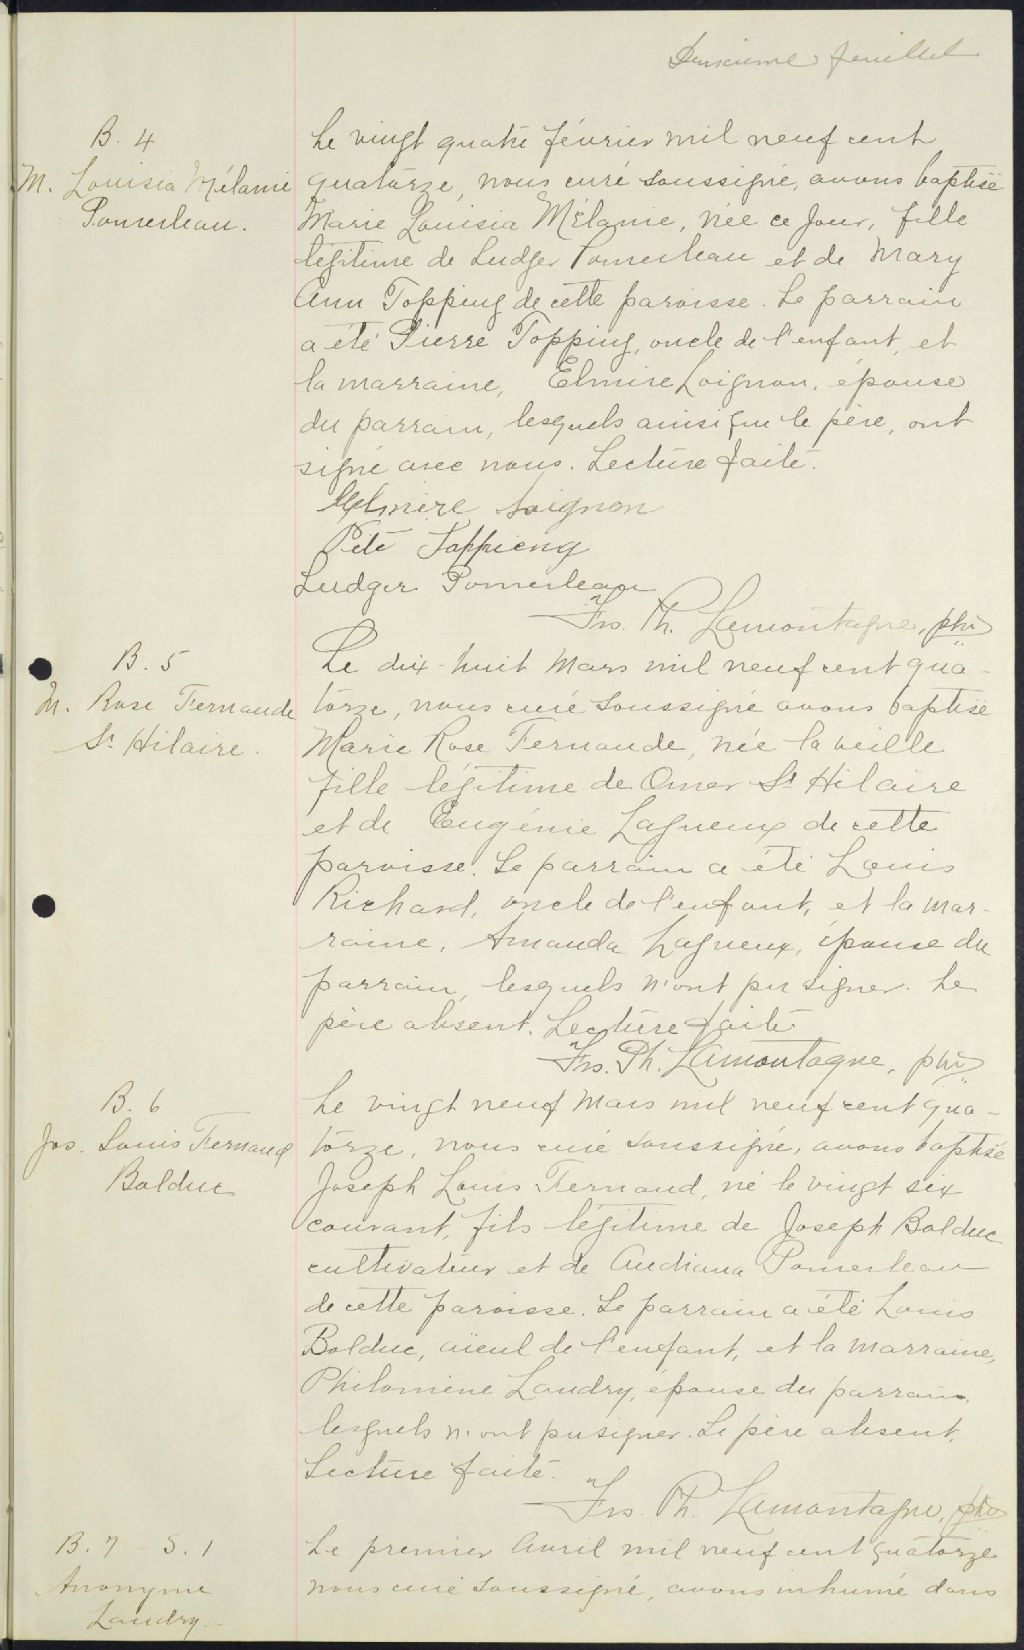 Deuxième feuillet
B. 4
M. Louisia Mélanie
Pomerleau.
Le vingt quatre février mil neuf cent
quatorze, nous curé soussigné, avons baptisé
Marie Louisia Mélanie, née ce jour, fille
légitime de Ludger Pomerleau et de Mary
Ann Topping de cette paroisse. Le parrain
a été Pierre Topping, oncle de l'enfant, et
la marraine, Elmire Loignon, épouse
du parrain, lesquels ainsi que le père, ont
signé avec nous. Lecture faite.
Elmire Loignon
Pete Toppieng
Ludger Pomerleau
Frs. Ph. Lamontagne, ptre
B. 5
M. Rose Fernande
St Hilaire.
Le dix-huit Mars mil neuf cent qua-
torze, nous curé soussigné avons baptisé
Marie Rose Fernande, née la veille
fille légitime de Omer St Hilaire
et de Eugénie Lagueux de cette
paroisse. Le parrain a été Louis
Richard, oncle de l'enfant, et la mar-
raine, Amanda Lagueux, épouse du
parrain, lesquels n'ont pu signer. Le
père absent. Lecture faite
Frs. Ph. Lamontagne, ptre
B. 6
Jos. Louis Fernand
Bolduc
Le vingt neuf Mars mil neuf cent qua-
torze, nous curé soussigné, avons baptisé
Joseph Louis Fernand, né le vingt six
courant, fils légitime de Joseph Bolduc
cultivateur et de Audiana Pomerleau
de cette paroisse. Le parrain a été Louis
Bolduc, aïeul de l'enfant, et la marraine,
Philomène Landry, épouse du parrain,
lesquels n'ont pu signer. Le père absent.
Lecture faite.
Frs. Ph. Lamontagne, ptre
B. 7 - S. 1
Anonyme
Landry.
Le premier Avril mil neuf cent quatorze
nous curé soussigné, avons inhumé dans